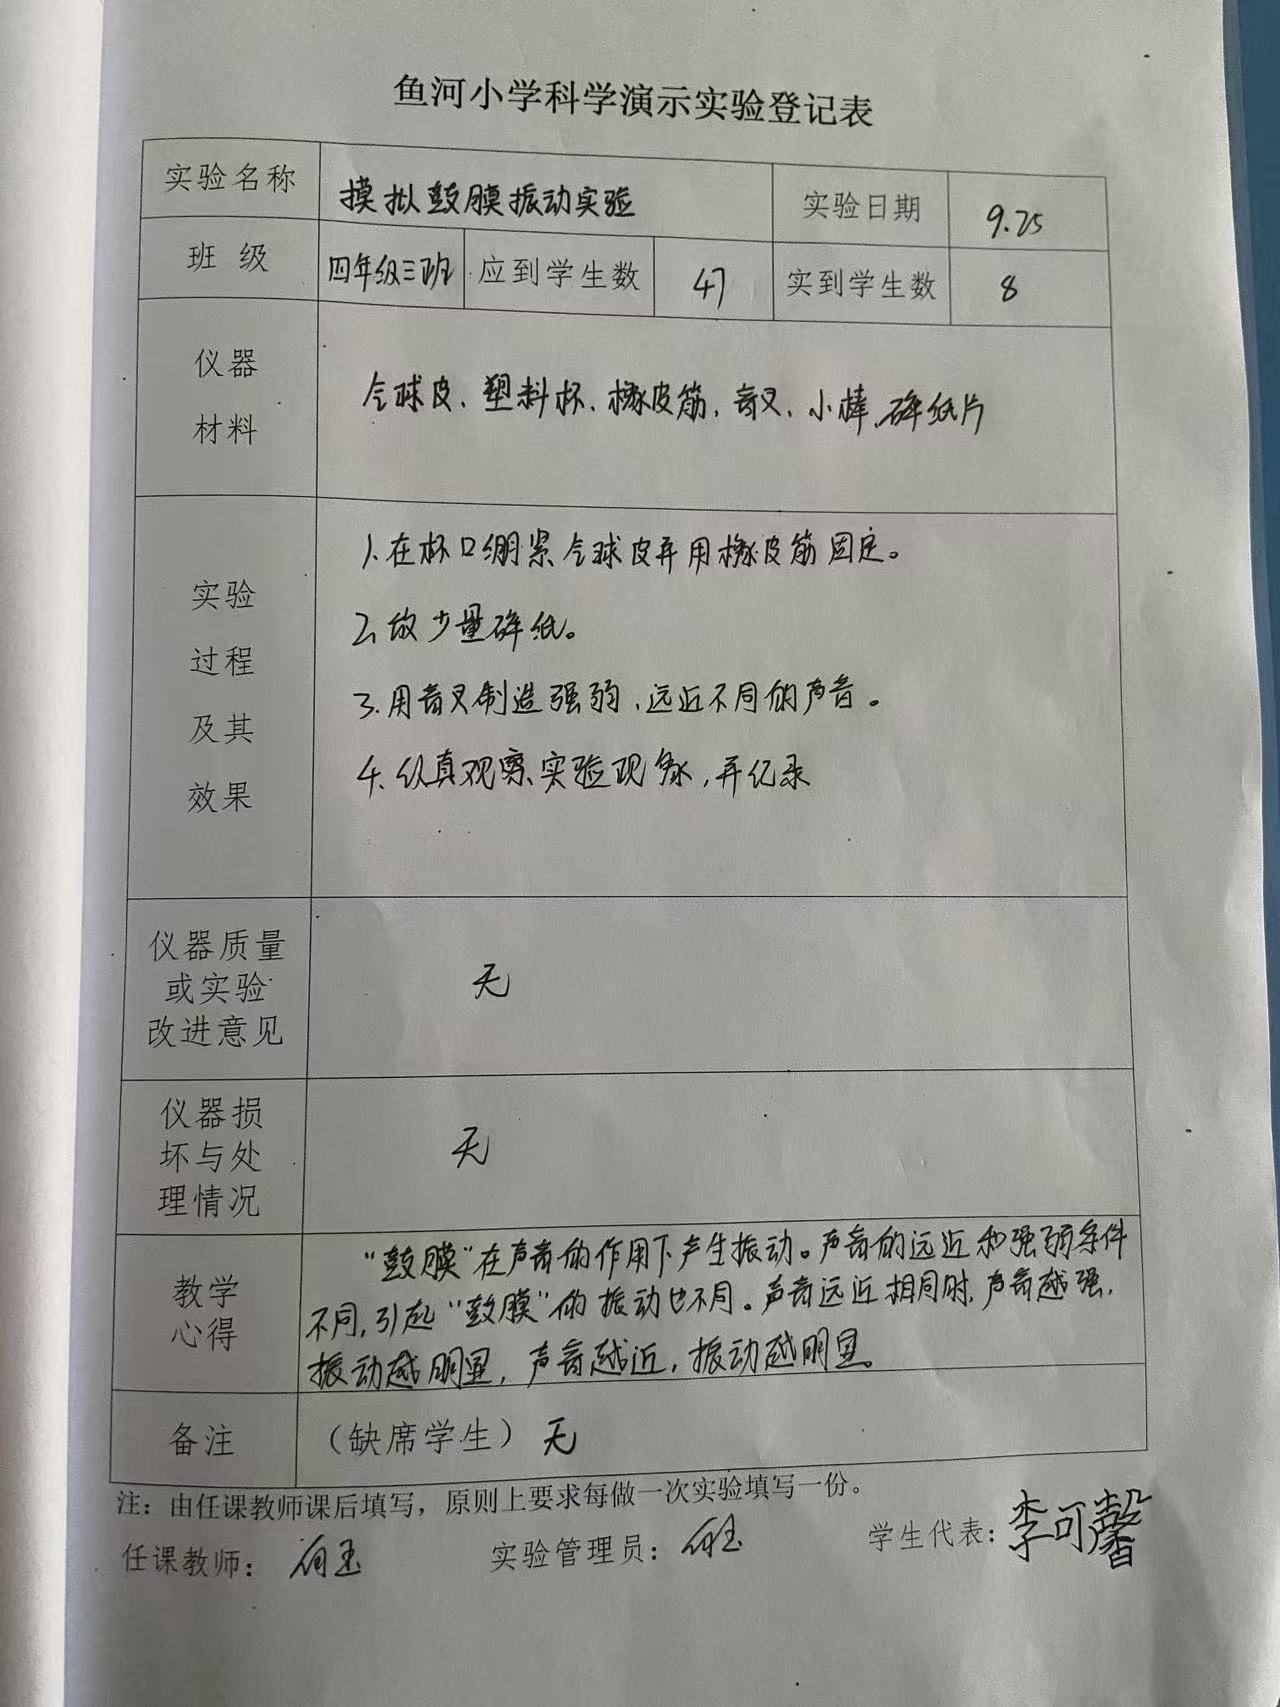 鱼河小学科学演示实验登记表
实验名称 摸拟鼓膜振动实验 实验日期 9.25
班 级 四年级三班 应到学生数 47 实到学生数 8
仪器
材料
气球皮、塑料杯、橡皮筋、音叉、小棒、碎纸片
实验
过程
及其
效果
1.在杯口绷紧气球皮并用橡皮筋固定。
2.放少量碎纸。
3.用音叉制造强弱、远近不同的声音。
4.认真观察实验现象,并记录
仪器质量
或实验
改进意见
无
仪器损
坏与处
理情况
无
教学
心得
“鼓膜”在声音的作用下产生振动。声音的远近和强弱条件
不同,引起“鼓膜”的振动也不同。声音远近相同时,声音越强,
振动越明显,声音越近,振动越明显。
备注 (缺席学生) 无
注:由任课教师课后填写,原则上要求每做一次实验填写一份。
任课教师: 实验管理员: 学生代表:李可馨